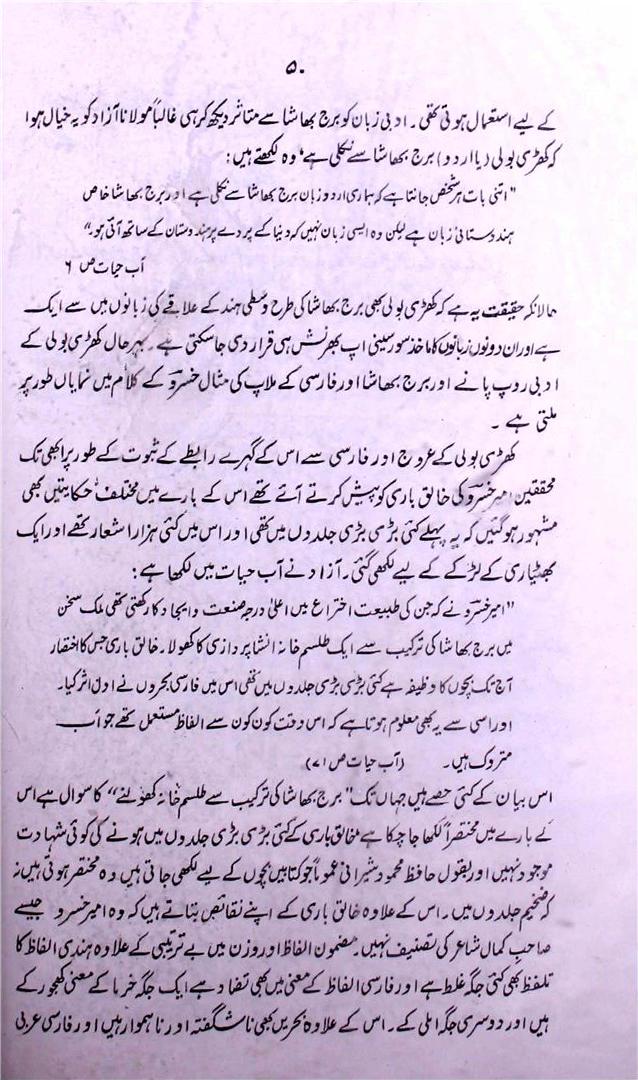 ۵۰
کے لیے استعمال ہوتی تھی۔ ادبی زبان کو برج بھاشا سے متاثر دیکھ کر ہی غالباً مولانا آزاد کو یہ خیال ہوا
کہ کھڑی بولی (یا اردو) برج بھاشا سے نکلی ہے، وہ لکھتے ہیں:
"اتنی بات ہر شخص جانتا ہے کہ ہماری اردو زبان برج بھاشا سے نکلی ہے اور برج بھاشا خاص
ہندوستانی زبان ہے لیکن وہ ایسی زبان نہیں کہ دنیا کے پردے پر ہندوستان کے ساتھ آئی ہو۔"
آب حیات ص ۶
حالانکہ حقیقت یہ ہے کہ کھڑی بولی بھی برج بھاشا کی طرح وسطی ہند کے علاقے کی زبانوں میں سے ایک
ہے اور ان دونوں زبانوں کا ماخذ سورسینی اپ بھرنش ہی قرار دی جا سکتی ہے۔ بہرحال کھڑی بولی کے
ادبی روپ پانے اور برج بھاشا اور فارسی کے ملاپ کی مثال خسرو کے کلام میں نمایاں طور پر
ملتی ہے۔
کھڑی بولی کے عروج اور فارسی سے اس کے گہرے رابطے کے ثبوت کے طور پر ابھی تک
محققین امیر خسرو کی خالق باری کو پیش کرتے آئے تھے اس کے بارے میں مختلف حکایتیں بھی
مشہور ہو گئیں کہ یہ پہلے کئی بڑی بڑی جلدوں میں تھی اور اس میں کئی ہزار اشعار تھے اور ایک
بھٹیاری کے لڑکے کے لیے لکھی گئی۔ آزاد نے آب حیات میں لکھا ہے:
"امیر خسرو نے کہ جن کی طبیعت اختراع میں اعلیٰ درجہ صنعت و ایجاد کا رکھتی تھی ملک سخن
میں برج بھاشا کی ترکیب سے ایک طلسم خانہ انشا پردازی کا کھولا۔ خالق باری جس کا اختصار
آج تک بچوں کا وظیفہ ہے کئی بڑی بڑی جلدوں میں تھی اس میں فارسی بحروں نے اول اثر کیا۔
اور اسی سے یہ بھی معلوم ہوتا ہے کہ اس وقت کون کون سے الفاظ مستعمل تھے جو اب
متروک ہیں۔ (آب حیات ص ۷۱)
اس بیان کے کئی حصے ہیں جہاں تک "برج بھاشا کی ترکیب سے طلسم خانہ کھولنے" کا سوال ہے اس
کے بارے میں مختصراً لکھا جا چکا ہے خالق باری کے کئی بڑی بڑی جلدوں میں ہونے کی کوئی شہادت
موجود نہیں اور بقول حافظ محمود شیرانی عموماً جو کتابیں بچوں کے لیے لکھی جاتی ہیں وہ مختصر ہوتی ہیں نہ
کہ ضخیم جلدوں میں۔ اس کے علاوہ خالق باری کے اپنے نقائص بتاتے ہیں کہ وہ امیر خسرو جیسے
صاحبِ کمال شاعر کی تصنیف نہیں۔ مضمون الفاظ اور وزن میں بے ترتیبی کے علاوہ ہندی الفاظ کا
تلفظ بھی کئی جگہ غلط ہے اور فارسی الفاظ کے معنی میں بھی تضاد ہے ایک جگہ خرما کے معنی کھجور کے
ہیں اور دوسری جگہ املی کے۔ اس کے علاوہ بحریں بھی ناشگفتہ اور ناہموار ہیں اور فارسی عربی